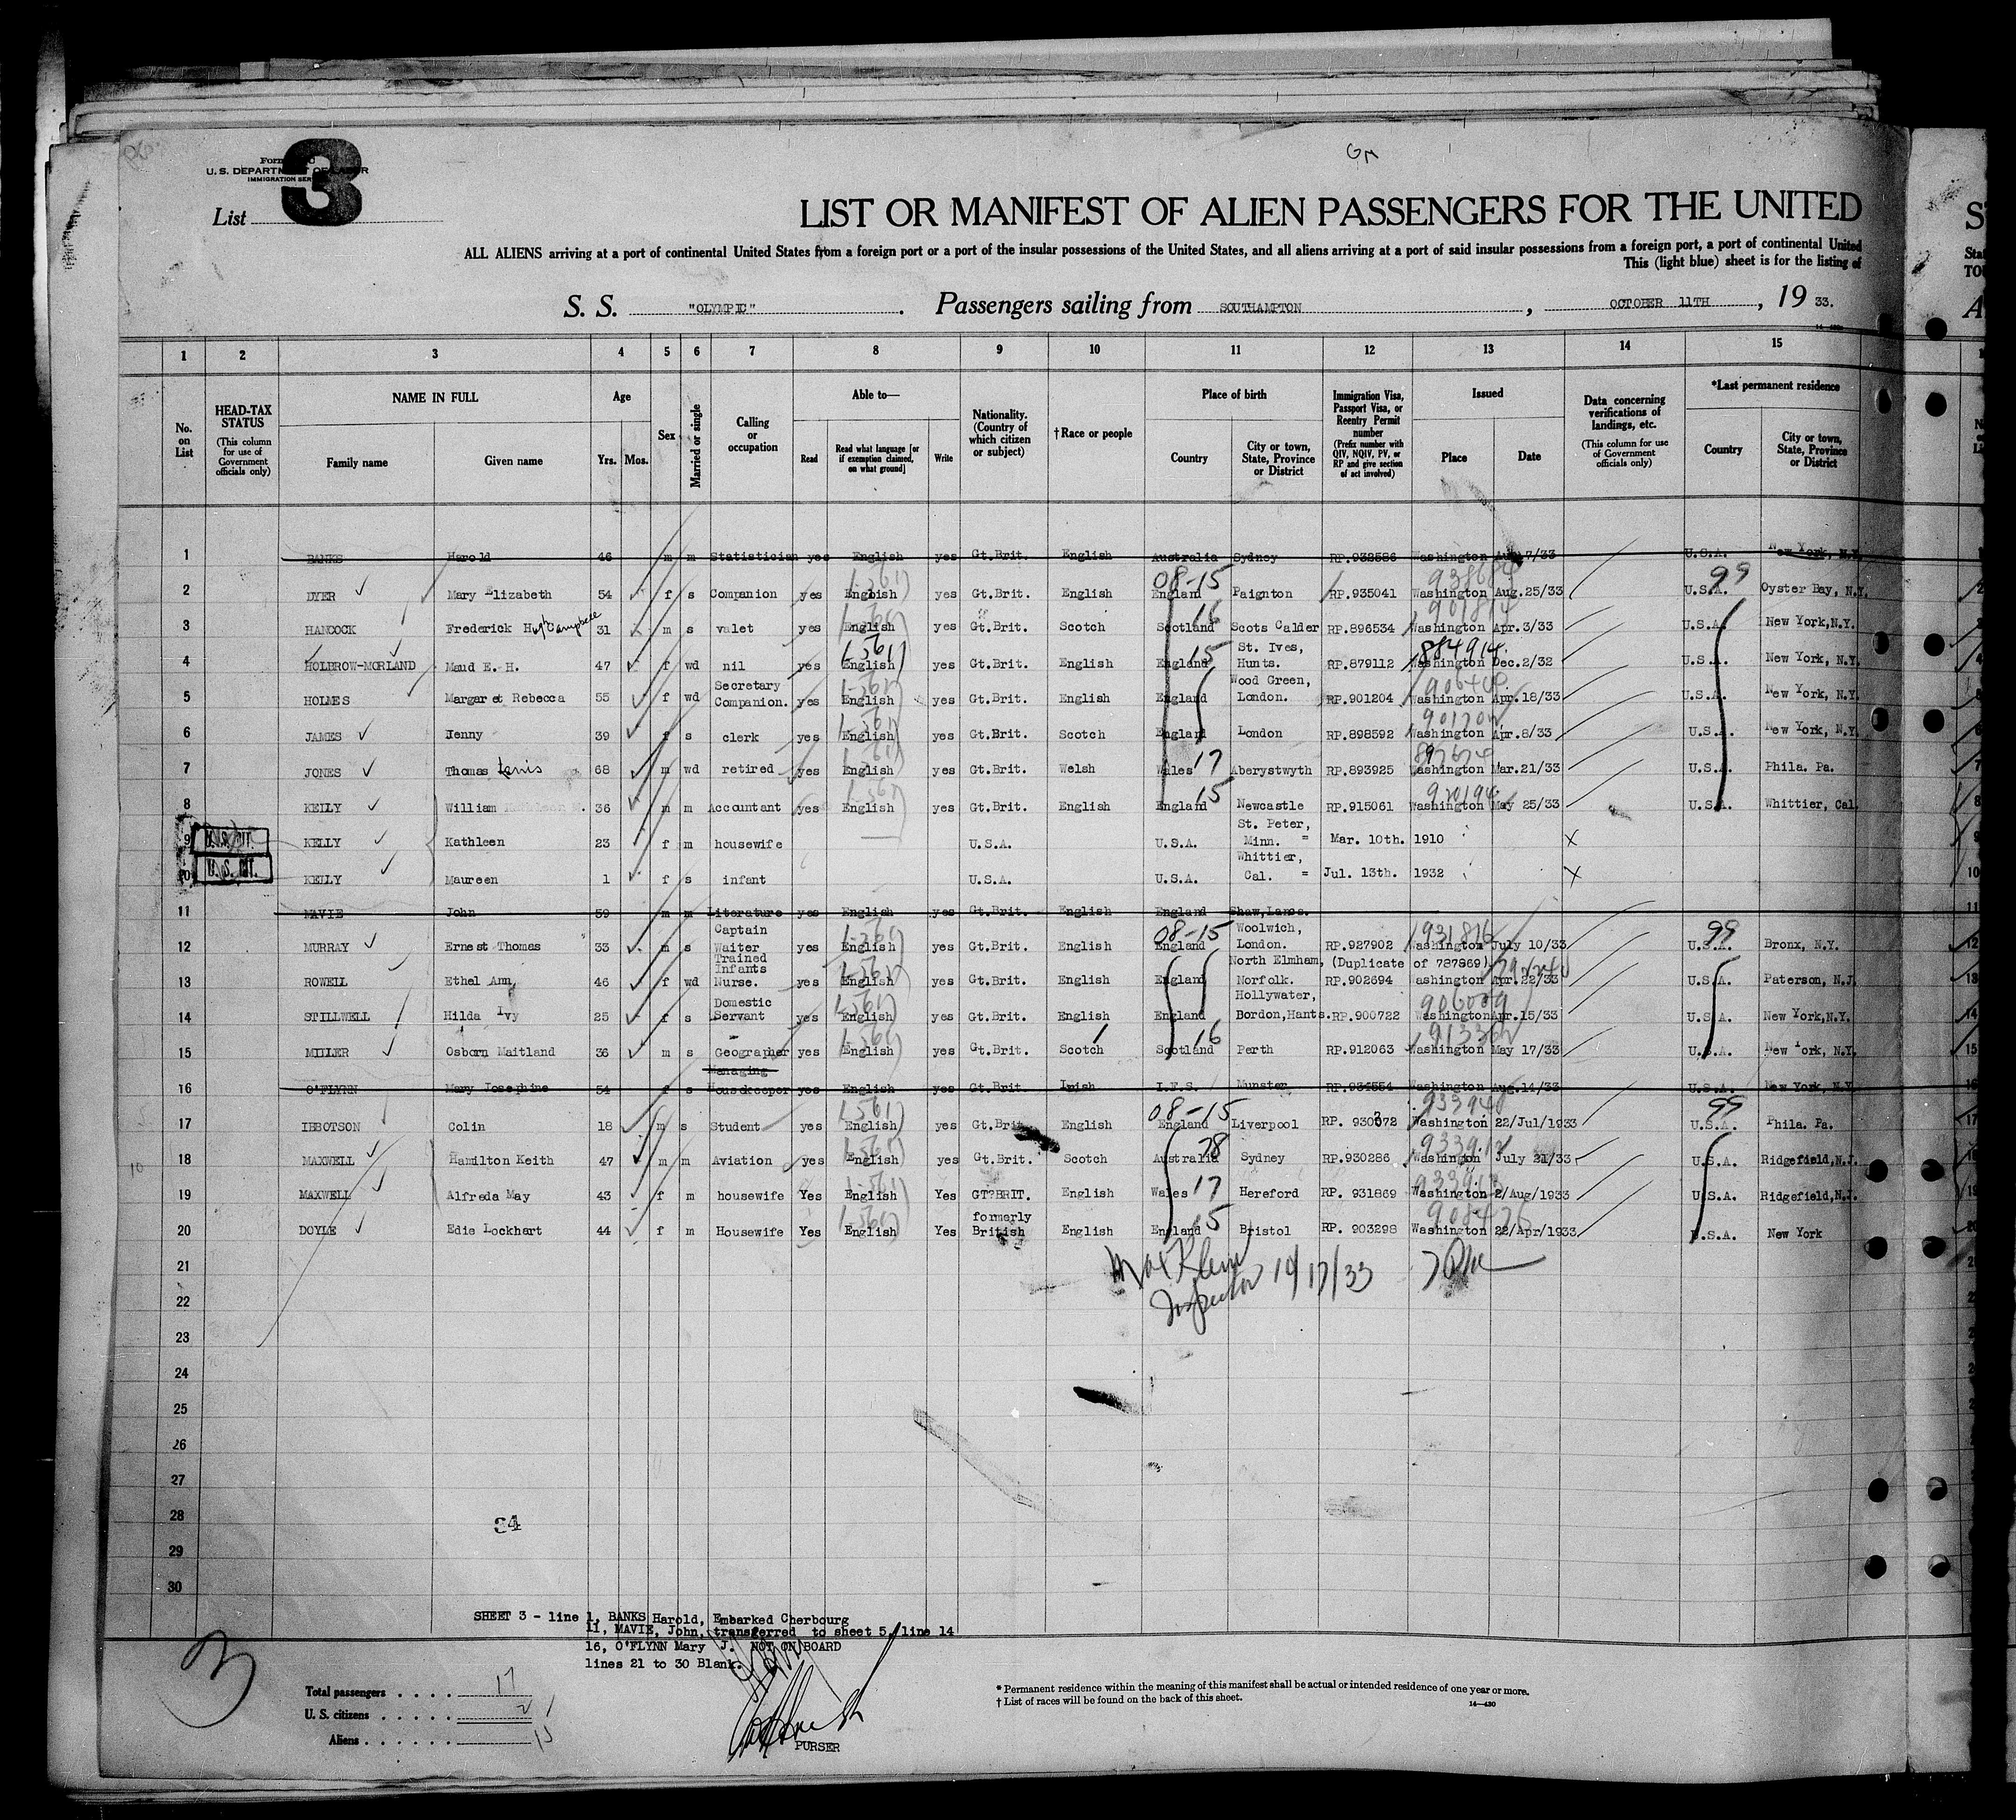 GM
Form
U. S. DEPARTMENT OF LABOR
IMMIGRATION SER
3
List
LIST OR MANIFEST OF ALIEN PASSENGERS FOR THE UNITED
ALL ALIENS arriving at a port of continental United States from a foreign port or a port of the insular possessions of the United States, and all aliens arriving at a port of said insular possessions from a foreign port, a port of continental United
This (light blue) sheet is for the listing of
S. S. "OLYMPIC" . Passengers sailing from SOUTHAMPTON , OCTOBER 11TH , 19 33.
1 2 3 4 5 6 7 8 9 10 11 12 13 14 15
No. on List
HEAD-TAX STATUS (This column for use of Government officials only)
NAME IN FULL Family name Given name
Age Yrs. Mos.
Sex
Married or single
Calling or occupation
Able to— Read Read what language [or if exemption claimed, on what ground] Write
Nationality. (Country of which citizen or subject)
†Race or people
Place of birth Country City or town, State, Province or District
Immigration Visa, Passport Visa, or Reentry Permit number (Prefix number with QIV, NQIV, PV, or RP and give section of act involved)
Issued Place Date
Data concerning verifications of landings, etc. (This column for use of Government officials only)
*Last permanent residence Country City or town, State, Province or District
1 BANKS Harold 46 m m Statistician yes English yes Gt.Brit. English Australia Sydney RP.932586 Washington Aug 7/33 U.S.A. New York, N.Y.
2 DYER Mary Elizabeth 54 f s Companion yes English yes Gt.Brit. English 08-15 England Paignton RP.935041 Washington Aug.25/33 U.S.A. 99 Oyster Bay, N.Y.
3 HANCOCK Frederick Hugh Campbell 31 m s valet yes English yes Gt.Brit. Scotch Scotland 16 Scots Calder RP.896534 901814 Washington Apr.3/33 U.S.A. New York,N.Y.
4 HOLBROW-MORLAND Maud E. H. 47 f wd nil yes English yes Gt.Brit. English England 15 St. Ives, Hunts. RP.879112 884914 Washington Dec.2/32 U.S.A. New York, N.Y.
5 HOLMES Margaret Rebecca 55 f wd Secretary Companion. yes English yes Gt.Brit. English England Wood Green, London. RP.901204 Washington Apr.18/33 U.S.A. New York, N.Y.
6 JAMES Jenny 39 f s clerk yes English yes Gt.Brit. Scotch England London RP.898592 Washington Apr.8/33 U.S.A. New York, N.Y.
7 JONES Thomas Lewis 68 m wd retired yes English yes Gt.Brit. Welsh Wales 17 Aberystwyth RP.893925 Washington Mar.21/33 U.S.A. Phila. Pa.
8 KEILY William 36 m m Accountant yes English yes Gt.Brit. English England 15 Newcastle RP.915061 920194 Washington May 25/33 U.S.A. Whittier, Cal.
9 U.S. CIT. KELLY Kathleen 23 f m housewife U.S.A. U.S.A. St. Peter, Minn. = Mar. 10th. 1910 X
10 U. S. CIT. KEILY Maureen 1 f s infant U.S.A. U.S.A. Whittier, Cal. = Jul. 13th. 1932 X
11 MAVIE John 59 m m Literature yes English yes Gt.Brit. English England Shaw,Lancs.
12 MURRAY Ernest Thomas 33 m s Captain Waiter yes English yes Gt.Brit. English 08-15 England Woolwich, London. RP.927902 931816 Washington July 10/33 U.S.A. 99 Bronx, N.Y.
13 ROWELL Ethel Ann, 46 f wd Trained Infants Nurse. yes English yes Gt.Brit. English England North Elmham, Norfolk. (Duplicate of 787869) RP.902694 Washington Apr.22/33 U.S.A. Paterson, N.J.
14 STILLWELL Hilda Ivy 25 f s Domestic Servant yes English yes Gt.Brit. English England Hollywater, Bordon,Hants. RP.900722 Washington Apr.15/33 U.S.A. New York,N.Y.
15 MILLER Osborn Maitland 36 m s Geographer yes English yes Gt.Brit. Scotch Scotland 16 Perth RP.912063 Washington May 17/33 U.S.A. New York, N.Y.
16 O'FLYNN Mary Josephine 54 f s Managing Housekeeper yes English yes Gt.Brit. Irish I.F.S. Munster RP.934554 Washington Aug.14/33 U.S.A. New York, N.Y.
17 IBBOTSON Colin 18 m s Student yes English yes Gt.Brit. English 08-15 England Liverpool RP. 930372 Washington 22/Jul/1933 U.S.A. 99 Phila. Pa.
18 MAXWELL Hamilton Keith 47 m m Aviation yes English yes Gt.Brit. Scotch Australia 28 Sydney RP.930286 Washington July 21/33 U.S.A. Ridgefield,N.J.
19 MAXWELL Alfreda May 43 f m housewife Yes English Yes GT?BRIT. English Wales 17 Hereford RP. 931869 Washington 2/Aug/1933 U.S.A. Ridgefield,N.J.
20 DOYLE Edie Lockhart 44 f m Housewife Yes English Yes formerly British English England 15 Bristol RP. 903298 Washington 22/Apr/1933 U.S.A. New York
21
Max Klein
Inspector 10/17/33
22
23
24
25
26
27
28
29
30
SHEET 3 - line 1, BANKS Harold, Embarked Cherbourg
11, MAVIE, John, transferred to sheet 5, line 14
16, O'FLYNN Mary J. NOT ON BOARD
lines 21 to 30 Blank.
3
Total passengers . . . . 17
U. S. citizens . . . . . 2
Aliens . . . . . . 15
PURSER
* Permanent residence within the meaning of this manifest shall be actual or intended residence of one year or more.
† List of races will be found on the back of this sheet.
14—430